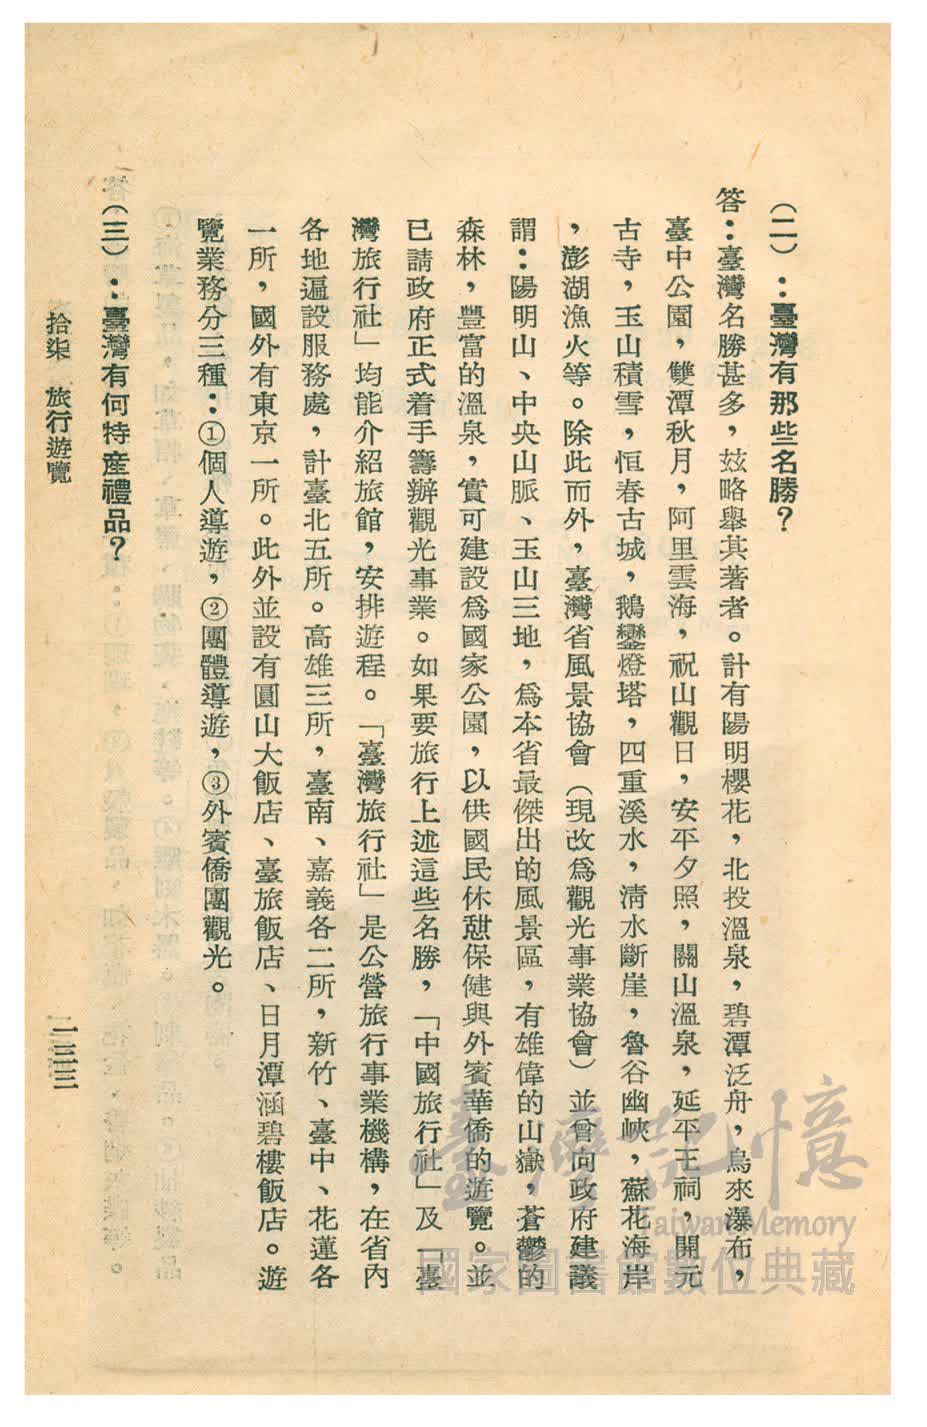 (二)：臺灣有那些名勝？
答：臺灣名勝甚多，玆略舉其著者。計有陽明櫻花，北投溫泉，碧潭泛舟，烏來瀑布，
臺中公園，雙潭秋月，阿里雲海，祝山觀日，安平夕照，關山溫泉，延平王祠，開元
古寺，玉山積雪，恒春古城，鵝鑾燈塔，四重溪水，淸水斷崖，魯谷幽峽，蘇花海岸
，澎湖漁火等。除此而外，臺灣省風景協會（現改爲觀光事業協會）並曾向政府建議
謂：陽明山、中央山脈、玉山三地，爲本省最傑出的風景區，有雄偉的山嶽，蒼鬱的
森林，豐富的溫泉，實可建設爲國家公園，以供國民休憩保健與外賓華僑的遊覽。並
已請政府正式着手籌辦觀光事業。如果要旅行上述這些名勝，「中國旅行社」及「臺
灣旅行社」均能介紹旅館，安排遊程。「臺灣旅行社」是公營旅行事業機構，在省內
各地遍設服務處，計臺北五所。高雄三所，臺南、嘉義各二所，新竹、臺中、花蓮各
一所，國外有東京一所。此外並設有圓山大飯店、臺旅飯店、日月潭涵碧樓飯店。遊
覽業務分三種：①個人導遊，②團體導遊，③外賓僑團觀光。
(三)：臺灣有何特產禮品？
拾柒 旅行遊覽
一三三
臺灣記憶
Taiwan Memory
國家圖書館數位典藏